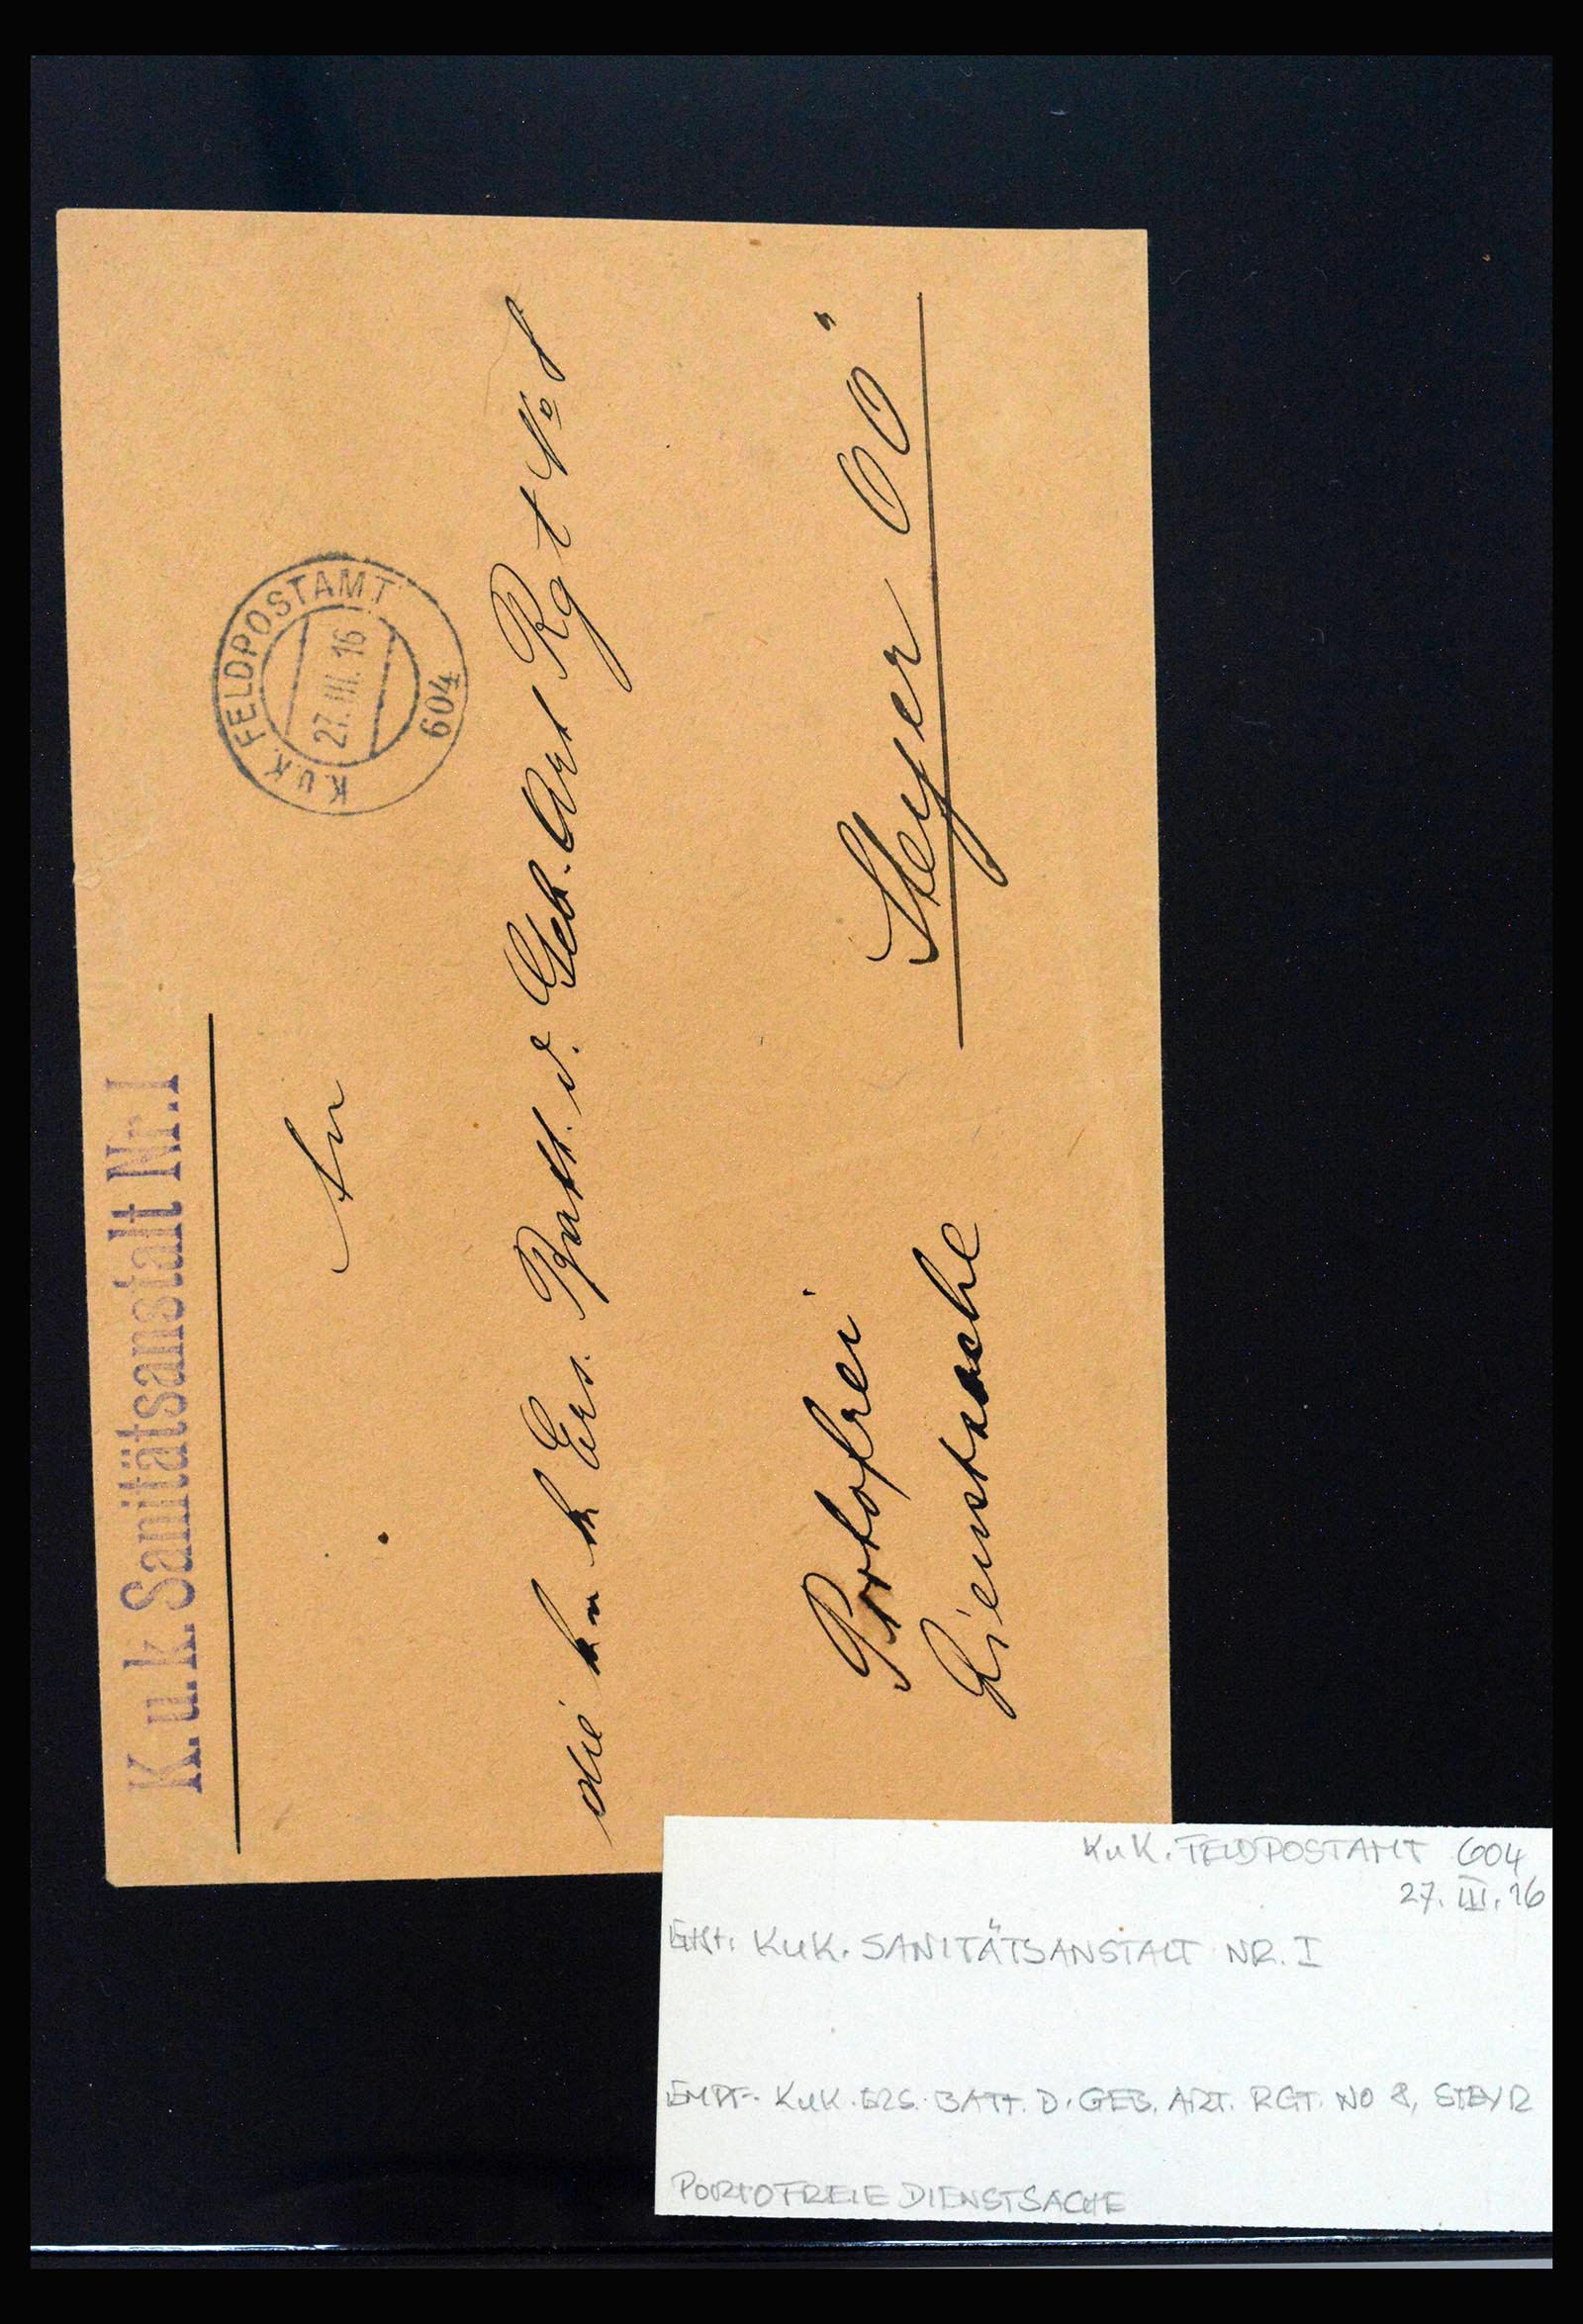 K.u.k. Sanitätsanstalt Nr. I
K.u.K. FELDPOSTAMT
27. III. 16
604
An
die k u k Ers. Batt. d. Geb. Art Rgt No 8
Portofrei
Dienstsache
Steyer OÖ
KuK. FELDPOSTAMT 604
27. III. 16
KuK. SANITÄTSANSTALT NR. I
EMPF. KuK. ERS. BATT. D. GEB. ART. RGT. NO 8, STEYR
PORTOFREIE DIENSTSACHE